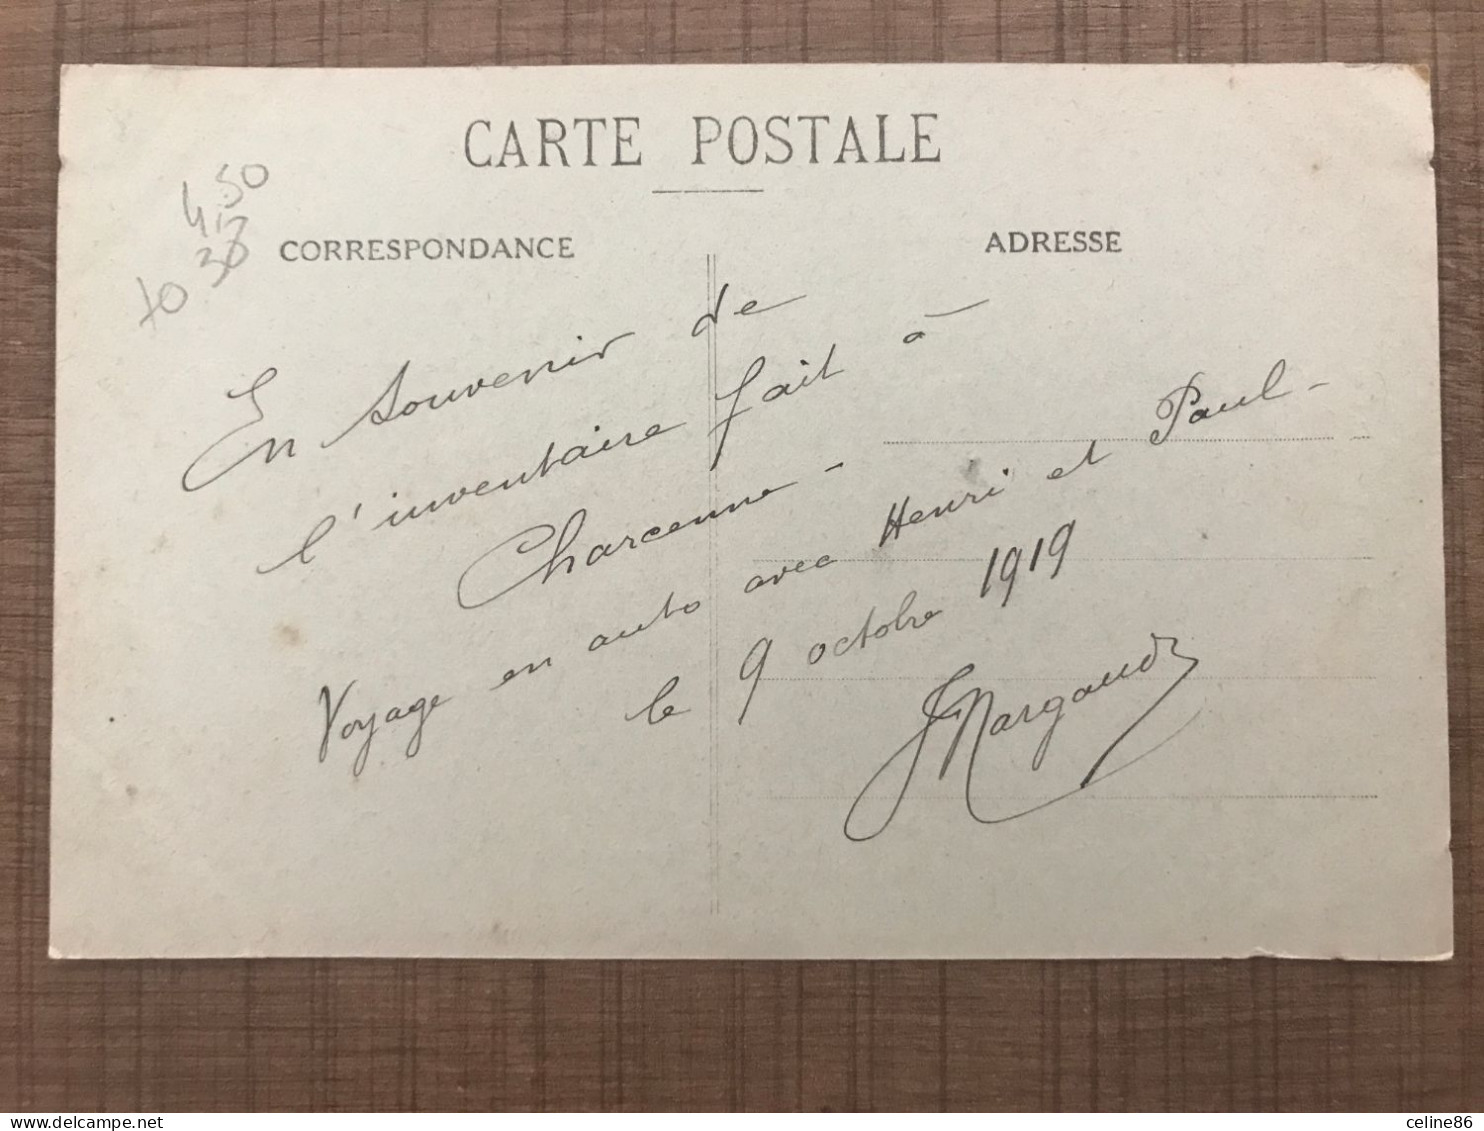 CARTE POSTALE
4.50
CORRESPONDANCE
ADRESSE
En souvenir de
l'inventaire fait à
Charcenne -
Voyage en auto avec Henri et Paul -
le 9 octobre 1919
Margaud
celine86